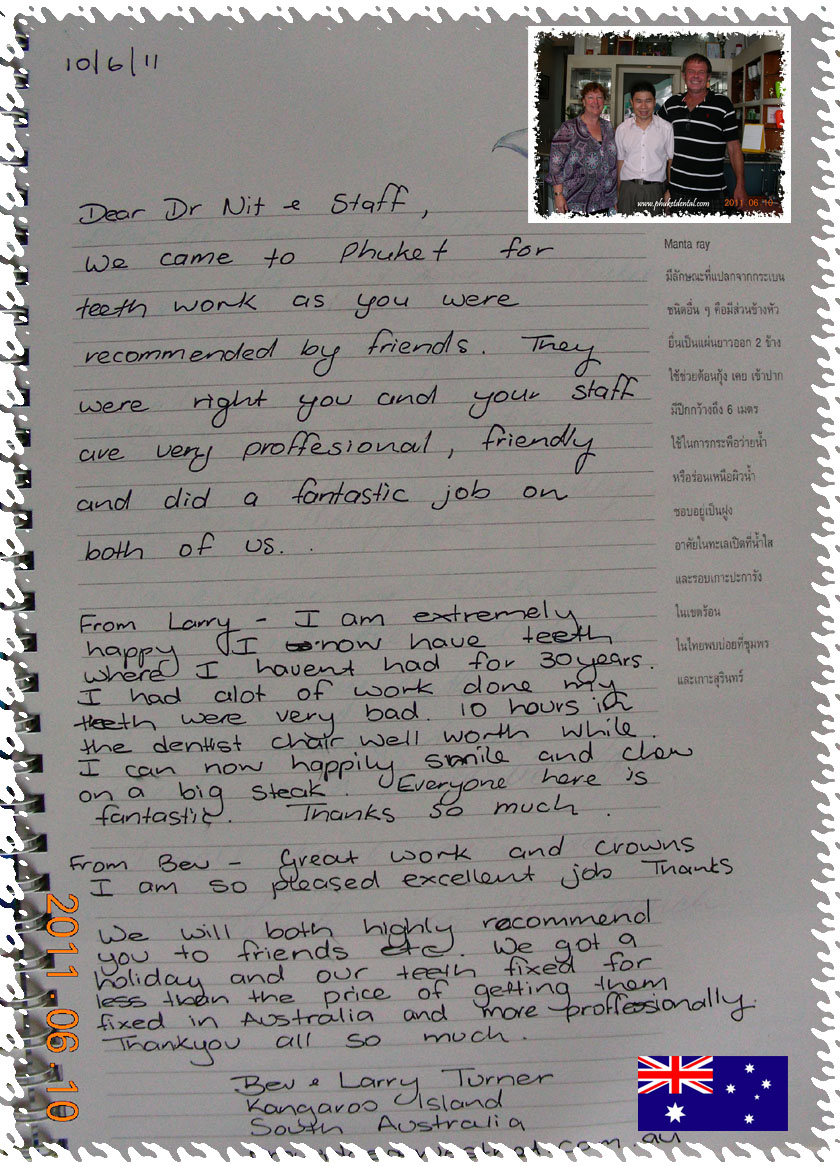 10/6/11
www.phuketdental.com
2011 06 10
Dear Dr Nit & Staff,
We came to Phuket for
teeth work as you were
recommended by friends. They
were right you and your staff
are very proffesional, friendly
and did a fantastic job on
both of us.
Manta ray
มีลักษณะที่แปลกจากกระเบน
ชนิดอื่น ๆ คือมีส่วนข้างหัว
ยื่นเป็นแผ่นยาวออก 2 ข้าง
ใช้ช่วยต้อนกุ้ง เคย เข้าปาก
มีปีกกว้างถึง 6 เมตร
ใช้ในการกระพือว่ายน้ำ
หรือร่อนเหนือผิวน้ำ
ชอบอยู่เป็นฝูง
อาศัยในทะเลเปิดที่น้ำใส
และรอบเกาะปะการัง
ในเขตร้อน
ในไทยพบบ่อยที่ชุมพร
และเกาะสุรินทร์
From Larry - I am extremely
happy I now have teeth
where I havent had for 30 years.
I had alot of work done my
teeth were very bad. 10 hours in
the dentist chair well worth while.
I can now happily smile and chew
on a big steak. Everyone here is
fantastic. Thanks so much.
From Bev - Great work and crowns
I am so pleased excellent job Thanks
We will both highly recommend
you to friends etc. We got a
holiday and our teeth fixed for
less than the price of getting them
fixed in Australia and more proffessionally.
Thankyou all so much.
Bev & Larry Turner
Kangaroo Island
South Australia
2011.06.10